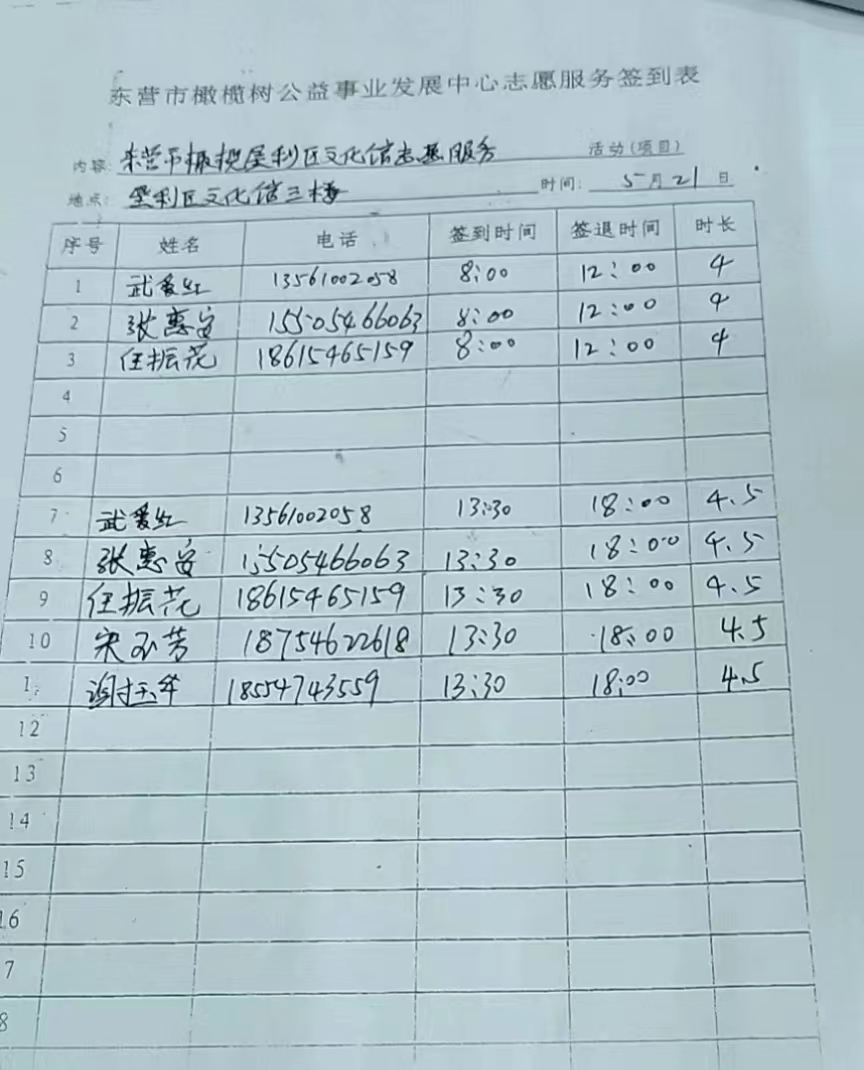 东营市橄榄树公益事业发展中心志愿服务签到表
内容: 东营市橄榄垦利区文化馆志愿服务 活动(项目)
地点: 垦利区文化馆三楼 时间: 5月21日
序号 姓名 电话 签到时间 签退时间 时长
1 武爱红 13561002058 8:00 12:00 4
2 张惠安 15505466063 8:00 12:00 4
3 任振花 18615465159 8:00 12:00 4
4
5
6
7 武爱红 13561002058 13:30 18:00 4.5
8 张惠安 15505466063 13:30 18:00 4.5
9 任振花 18615465159 13:30 18:00 4.5
10 宋芳 18754622618 13:30 18:00 4.5
1 18554743559 13:30 18:00 4.5
12
13
14
15
16
7
8